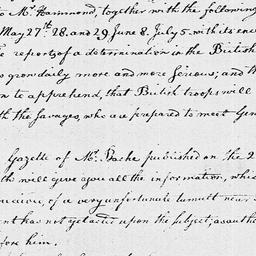 to Mr. Hammond, together with the following
May 27th. 28. and 29. June 8. July 5. with its enc
he reports of a determination in the British
o grow daily more and more serious; and
n to apprehend, that British troops will
th the Savages, who are prepared to meet Gen
Gazette of Mr. Bache published on the 2
th will give you all the information, whic
of a very unfortunate tumult near
ent has not yet acted upon the subject; as auth
fore him.